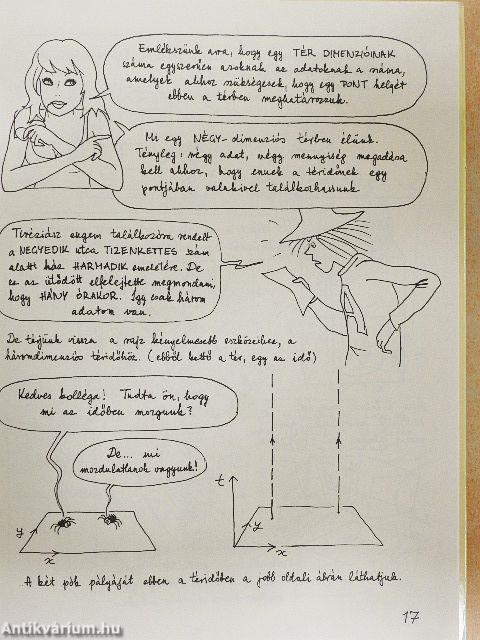 Emlékszünk arra, hogy egy TÉR DIMENZIÓINAK
száma egyszerűen azoknak az adatoknak a száma,
amelyek ahhoz szükségesek, hogy egy PONT helyét
ebben a térben meghatározzuk.
Mi egy NÉGY-dimenziós térben élünk.
Tényleg: négy adat, négy mennyiség megadása
kell ahhoz, hogy ennek a téridőnek egy
pontjában valakivel találkozhassunk
Tiréziász engem találkozóra rendelt
a NEGYEDIK utca TIZENKETTES szám
alatti ház HARMADIK emeletére. De
ez az ütődött elfelejtette megmondani,
hogy HÁNY ÓRAKOR. Így csak három
adatom van.
De térjünk vissza a rajz kényelmesebb eszközeihez, a
háromdimenziós téridőhöz. (ebből kettő a tér, egy az idő)
Kedves kolléga! Tudta ön, hogy
mi az időben mozgunk?
De... mi
mozdulatlanok vagyunk!
t
y
x
y
x
A két pók pályáját ebben a téridőben a jobb oldali ábrán láthatjuk.
17
Antikvárium.hu